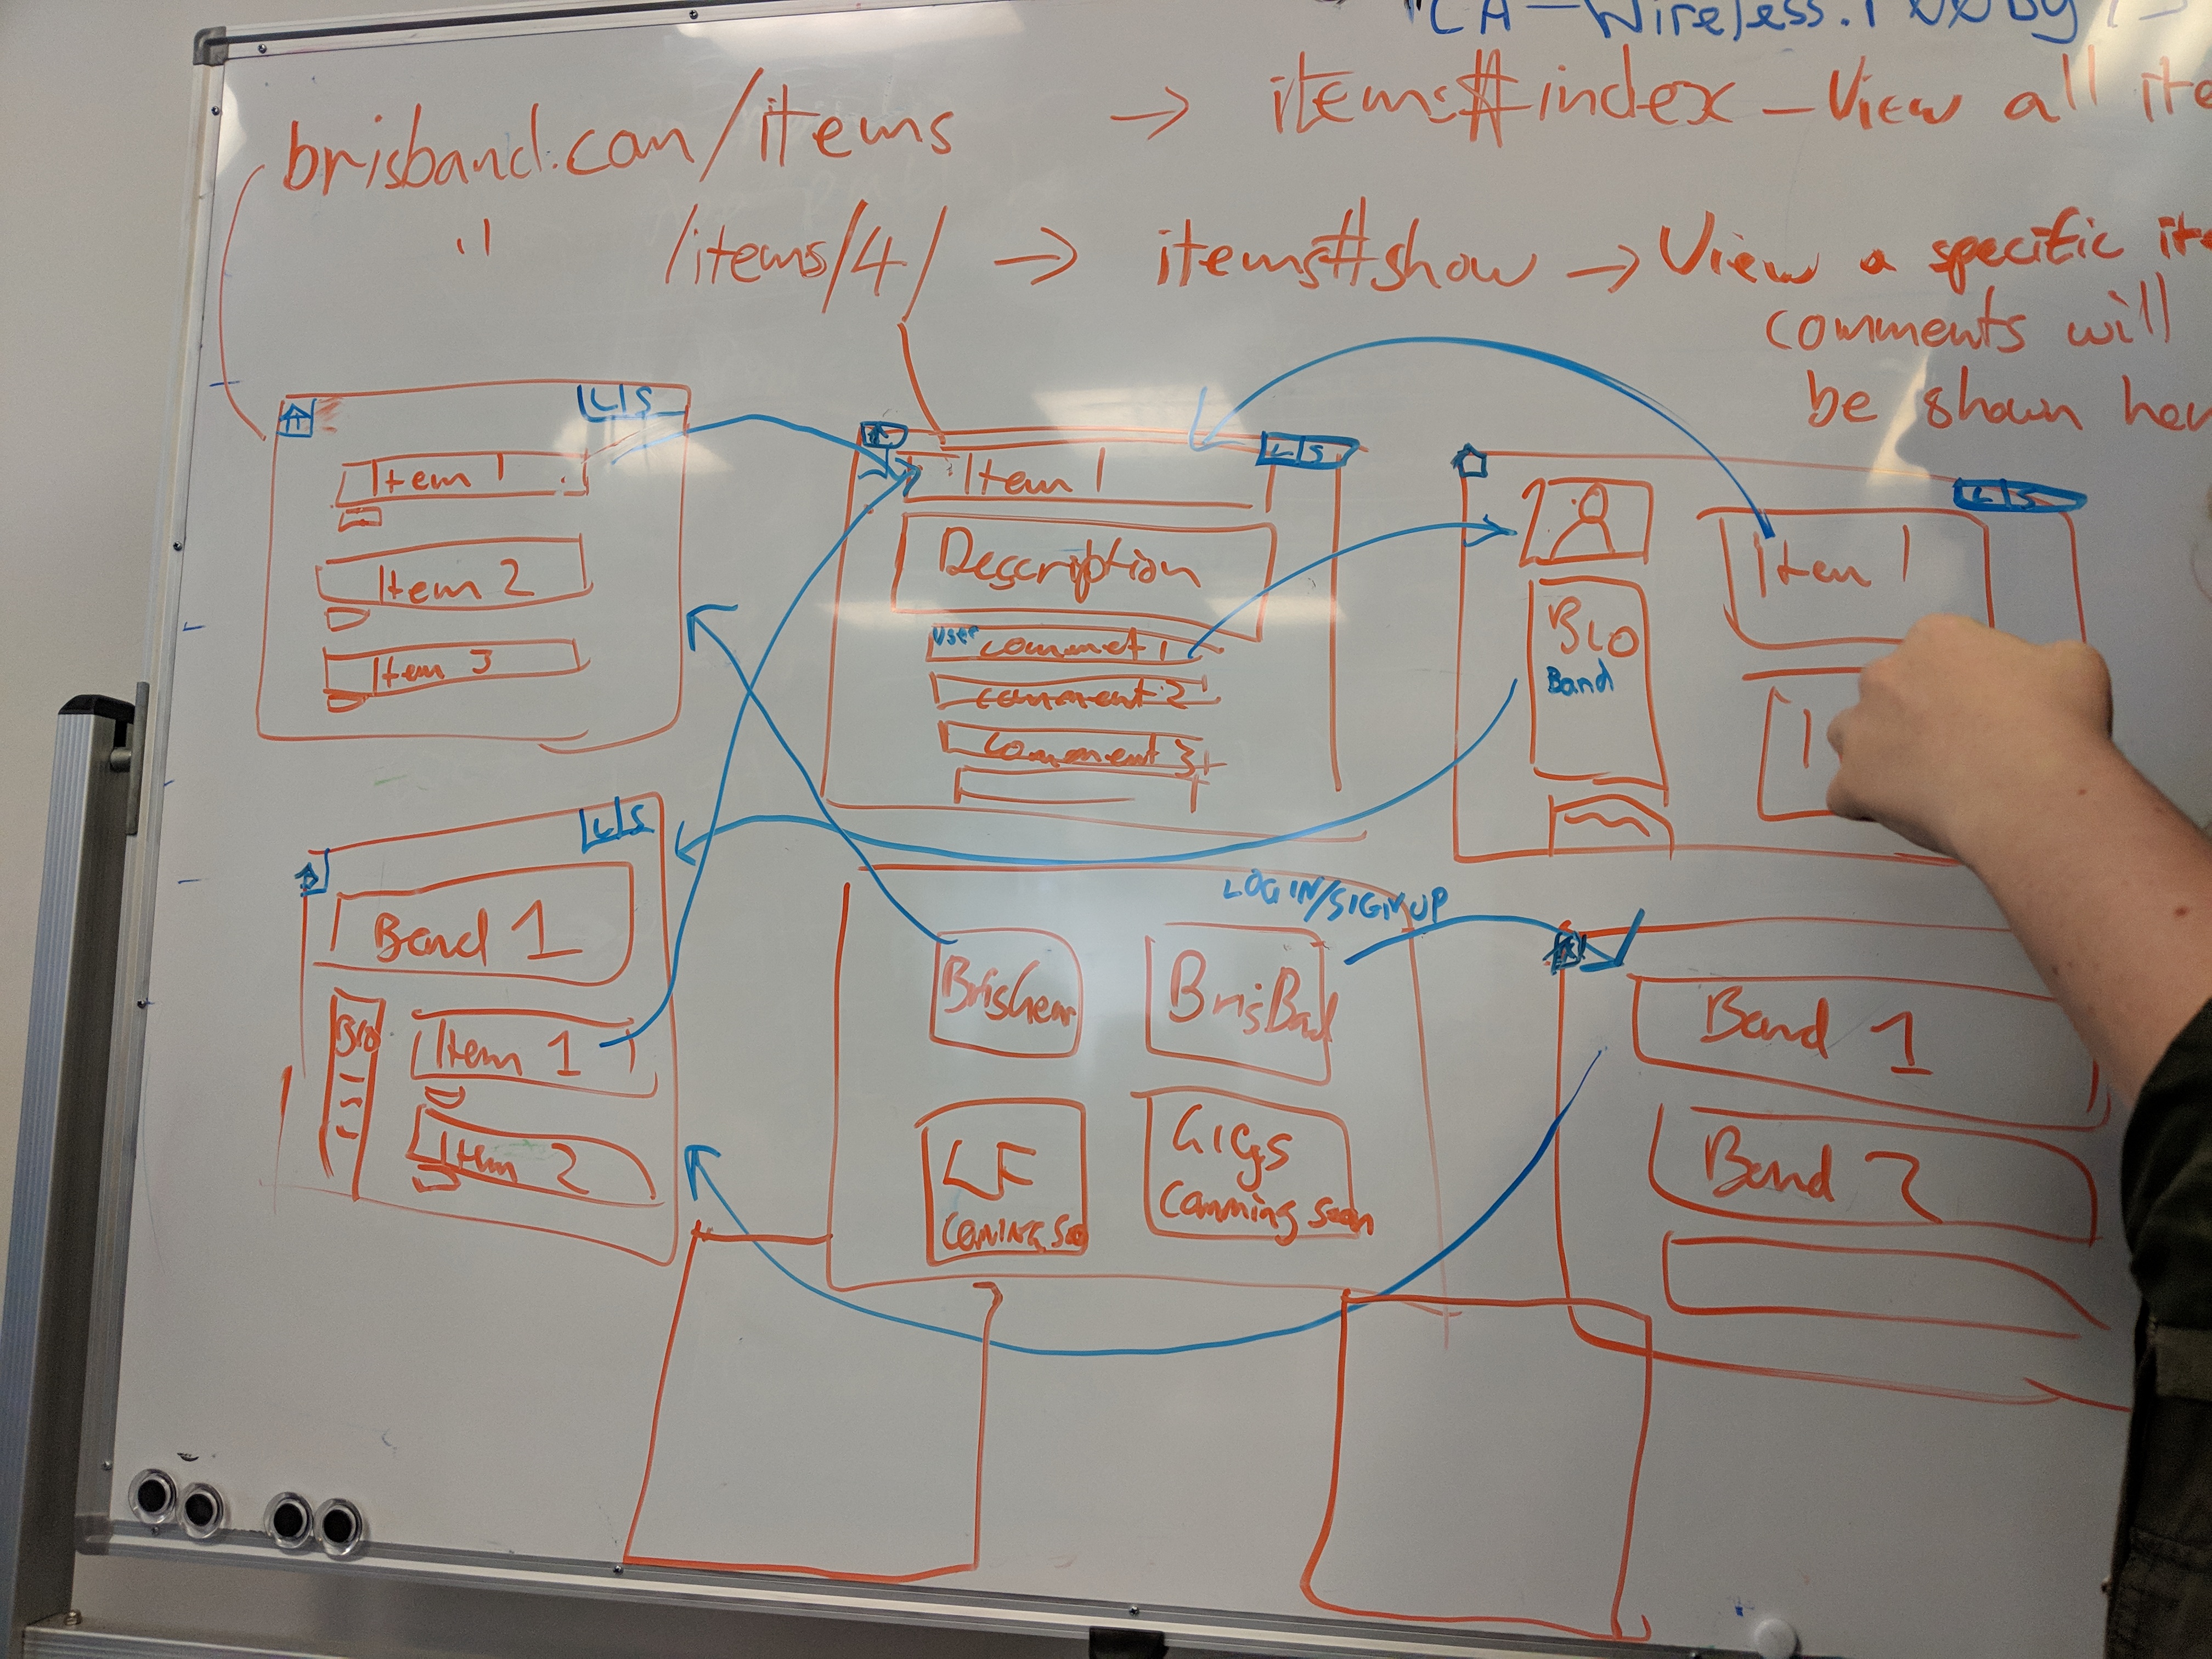 CA-Wireless.
brisband.com/items → items#index - View all ite
" /items/4/ → items#show → View a specific ite
comments will
be shown her
L|S
Item 1
Item 2
Item 3
L|S
Item 1
Description
User commet 1
comment 2
comment 3
L|S
BIO
Band
Item 1
I
L|S
Band 1
BIO
Item 1
Item 2
LOGIN/SIGNUP
BrisBad
LF
COMING SOO
GIGS
Comming soon
Band 1
Band 2